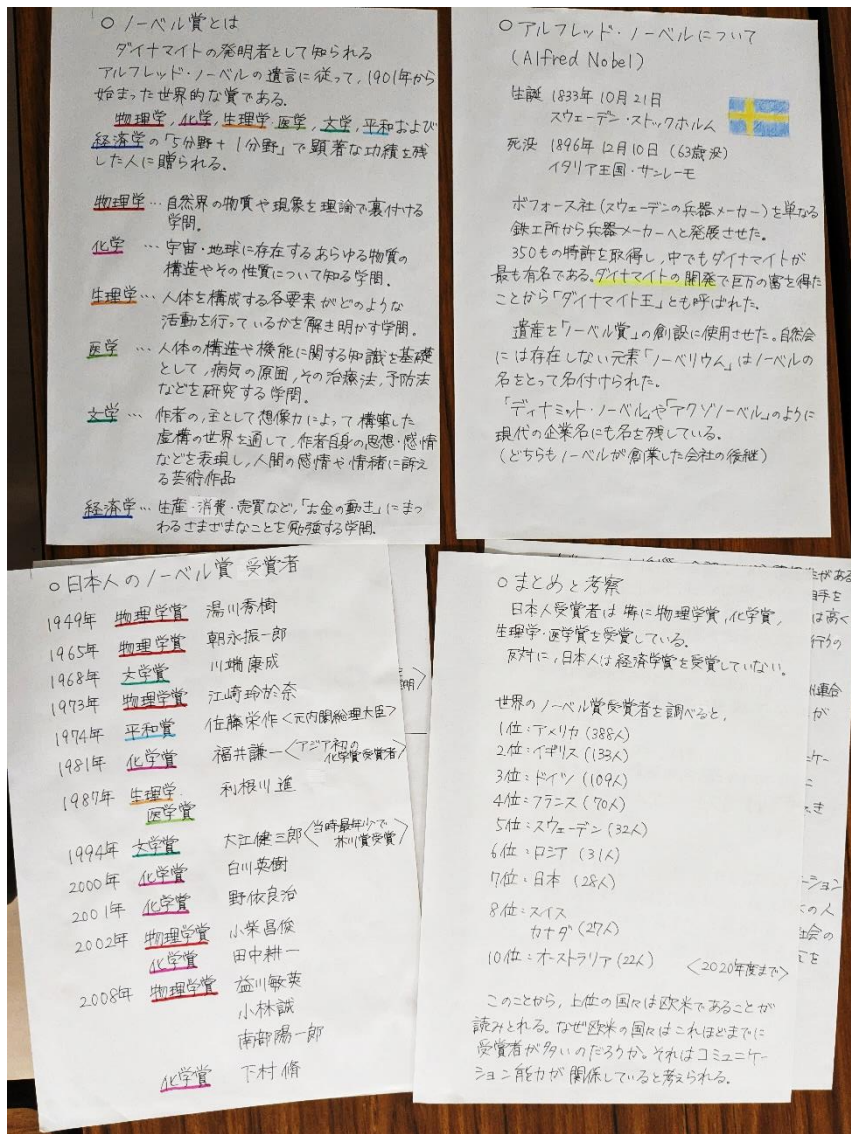 ○ ノーベル賞とは
ダイナマイトの発明者として知られる
アルフレッド・ノーベルの遺言に従って,1901年から
始まった世界的な賞である。
物理学,化学,生理学・医学,文学,平和および
経済学の「5分野+1分野」で顕著な功績を残
した人に贈られる。
物理学…自然界の物質や現象を理論で裏付ける
学問。
化学 …宇宙・地球に存在するあらゆる物質の
構造やその性質について知る学問。
生理学…人体を構成する各要素がどのような
活動を行っているかを解き明かす学問。
医学 …人体の構造や機能に関する知識を基礎
として,病気の原因,その治療法,予防法
などを研究する学問。
文学 … 作者の,主として想像力によって構築した
虚構の世界を通して,作者自身の思想・感情
などを表現し,人間の感情や情緒に訴え
る芸術作品
経済学…生産・消費・売買など,「お金の動き」にまつ
わるさまざまなことを勉強する学問。
○ アルフレッド・ノーベルについて
(Alfred Nobel)
生誕 1833年10月21日
スウェーデン・ストックホルム
死没 1896年12月10日(63歳没)
イタリア王国・サンレーモ
ボフォース社(スウェーデンの兵器メーカー)を単なる
鉄工所から兵器メーカーへと発展させた。
350もの特許を取得し,中でもダイナマイトが
最も有名である。ダイナマイトの開発で巨万の富を得た
ことから「ダイナマイト王」とも呼ばれた。
遺産を「ノーベル賞」の創設に使用させた。自然会
には存在しない元素「ノーベリウム」はノーベルの
名をとって名付けられた。
「ディナミット・ノーベル」や「アクゾノーベル」のように
現代の企業名にも名を残している。
(どちらもノーベルが創業した会社の後継)
○日本人のノーベル賞 受賞者
1949年 物理学賞 湯川秀樹
1965年 物理学賞 朝永振一郎
1968年 文学賞 川端康成
1973年 物理学賞 江崎玲於奈
1974年 平和賞 佐藤栄作<元内閣総理大臣>
1981年 化学賞 福井謙一<アジア初の
化学賞受賞者>
1987年 生理学・
医学賞 利根川進
1994年 文学賞 大江健三郎<当時最年少で
芥川賞受賞>
2000年 化学賞 白川英樹
2001年 化学賞 野依良治
2002年 物理学賞 小柴昌俊
化学賞 田中耕一
2008年 物理学賞 益川敏英
小林誠
南部陽一郎
化学賞 下村脩
○まとめと考察
日本人受賞者は特に物理学賞,化学賞,
生理学・医学賞を受賞している。
反対に,日本人は経済学賞を受賞していない。
世界のノーベル賞受賞者を調べると,
1位:アメリカ(388人)
2位:イギリス(133人)
3位:ドイツ(109人)
4位:フランス(70人)
5位:スウェーデン(32人)
6位:ロシア(31人)
7位:日本(28人)
8位:スイス
カナダ(27人)
10位:オーストラリア(22人) <2020年度まで>
このことから,上位の国々は欧米であることが
読みとれる。なぜ欧米の国々はこれほどまでに
受賞者が多いのだろうか。それはコミュニケー
ション能力が関係していると考えられる。